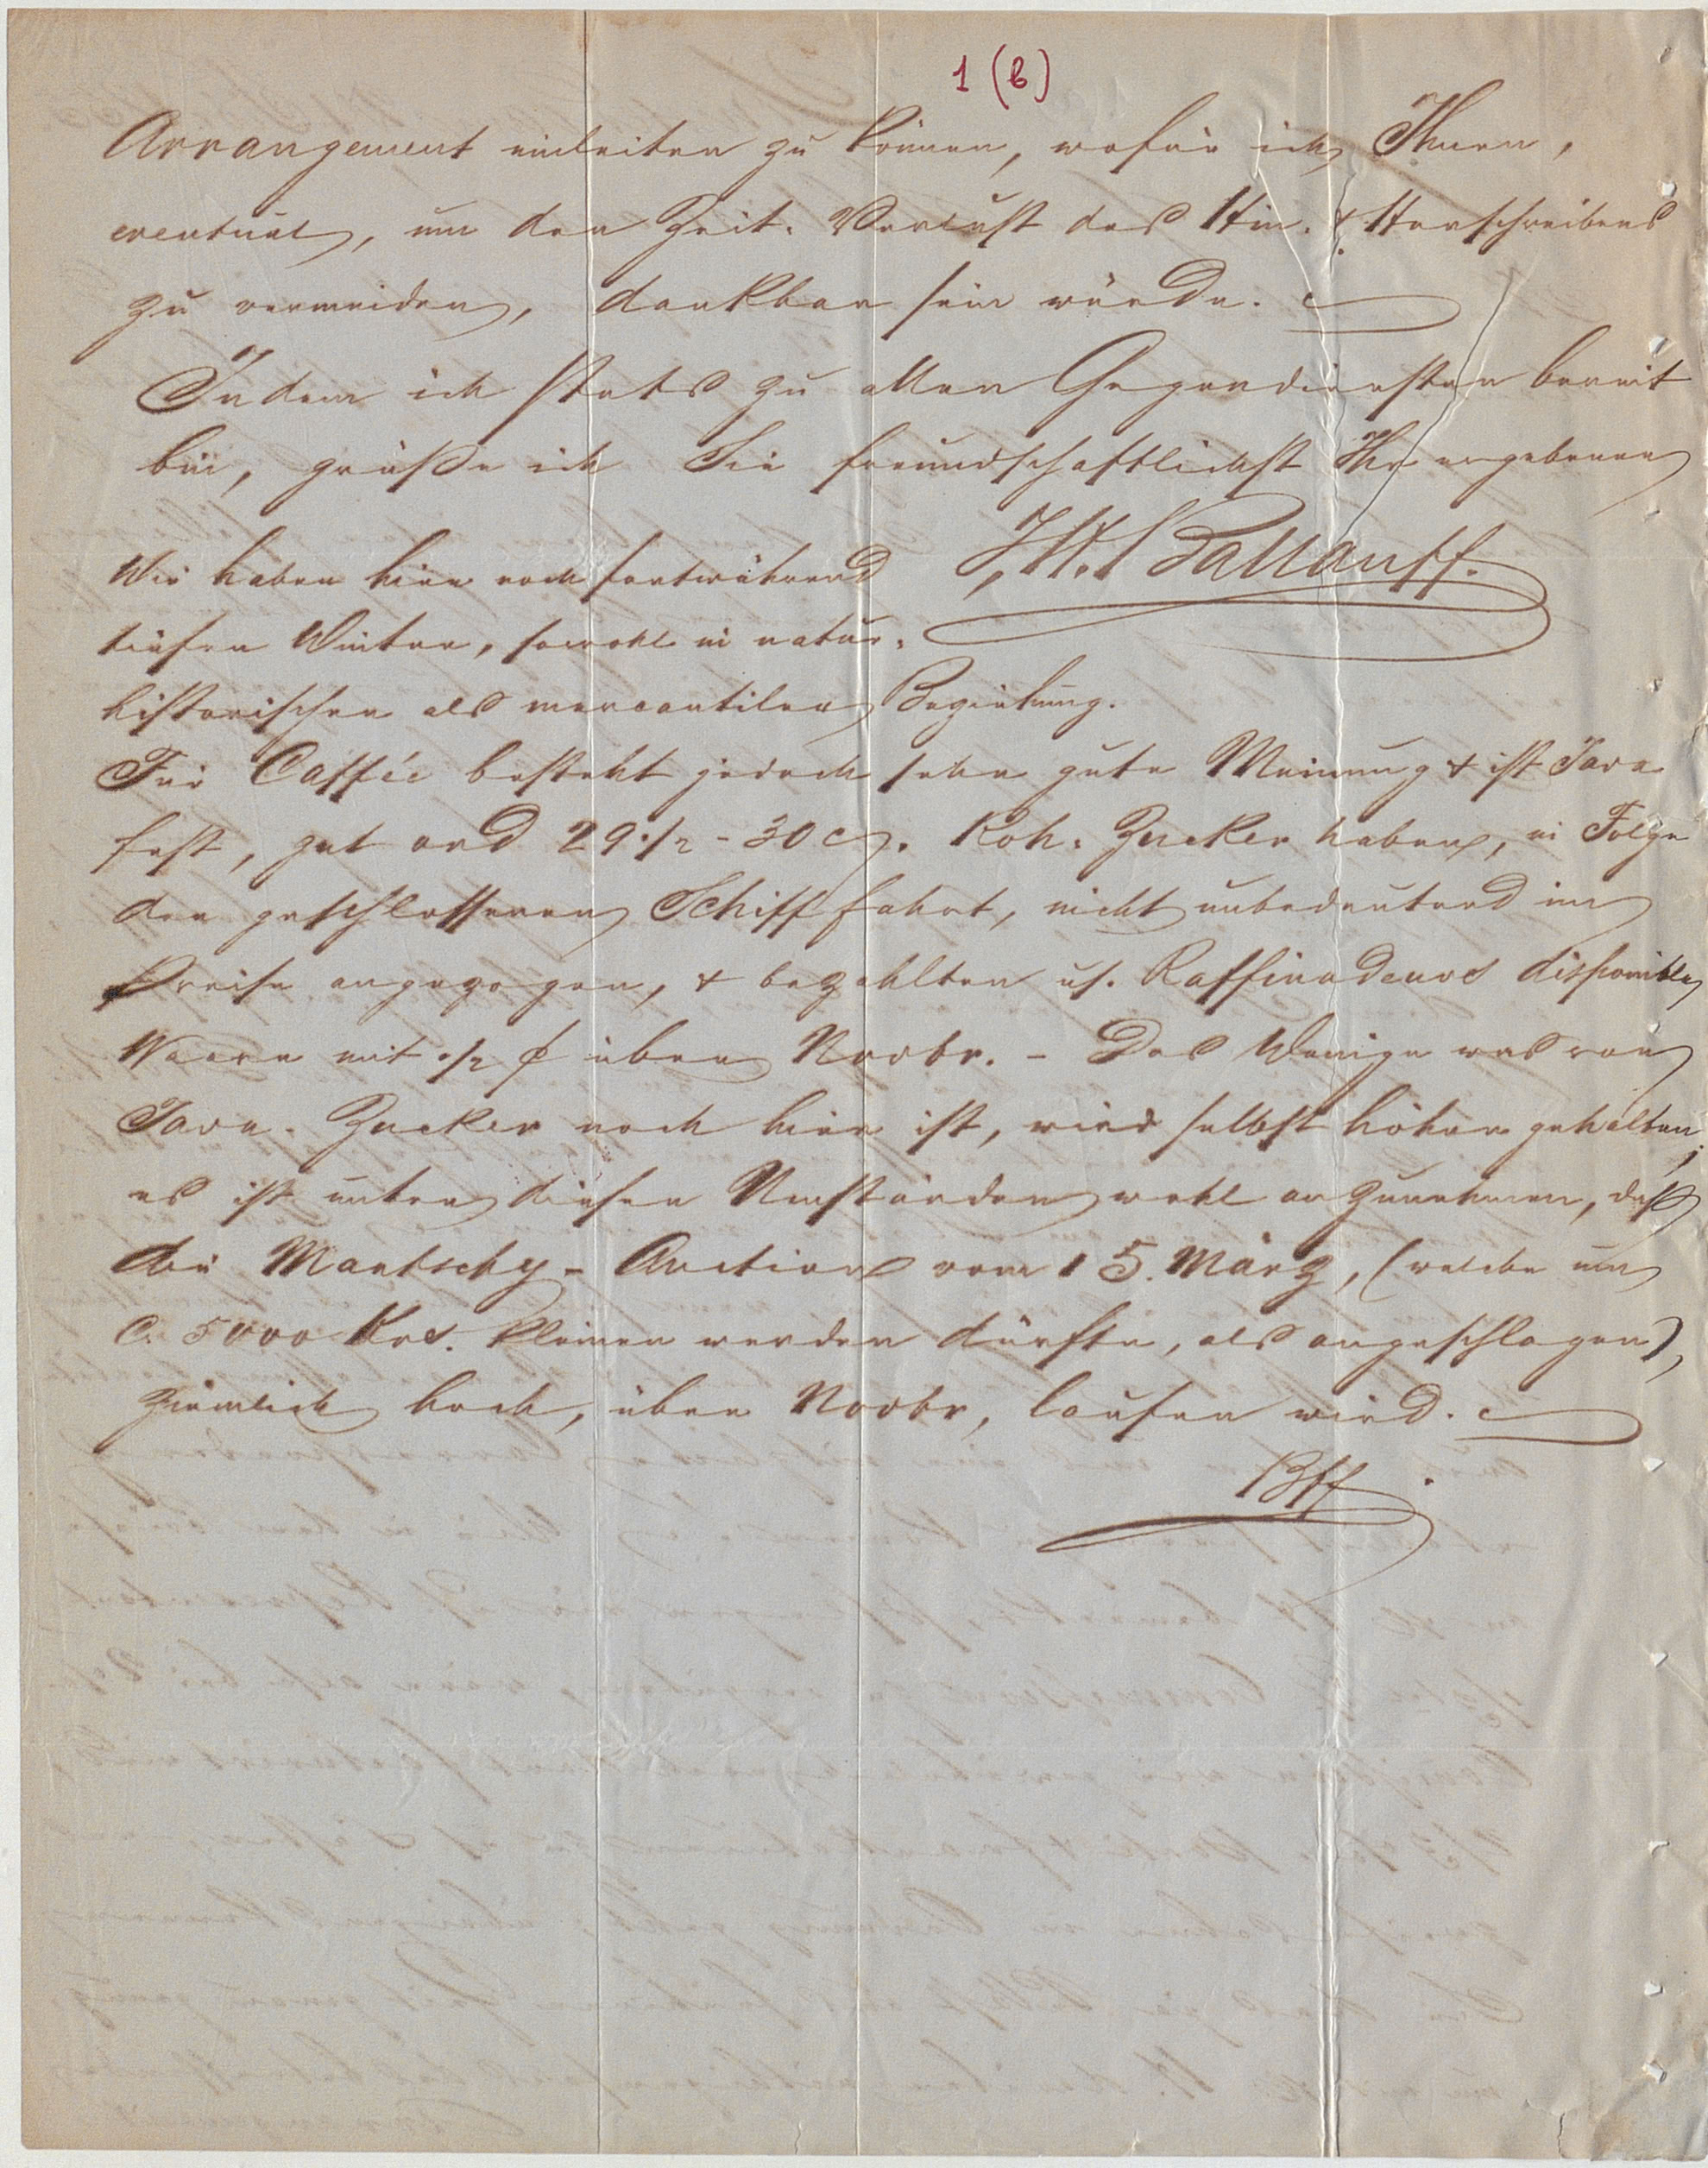 1 (b)
Arrangement einleiten zu können, wofür ich Ihnen,
eventuel, um den Zeit-Verlust des Hin- & Herschreibens
zu vermeiden, dankbar sein würde.
Indem ich stets zu allen Gegendiensten bereit
bin, grüße ich Sie freundschaftlichst Ihr ergebener
J. W. Ballauff.
Wir haben hier noch fortwährend
tiefen Winter, sowohl in natur-
historischer als mercantiler Beziehung.
Für Caffée besteht jedoch sehr gute Meinung & ist Java
fest, gut ord 29 1/2 - 30 c. Roh-Zucker haben, in Folge
der geschlossenen Schifffahrt, nicht unbedeutend im
Preise angezogen, & bezahlten uns. Raffinadeurs disponible
Waare mit 1/2 f über Novbr. - Das Wenige was von
Java-Zucker noch hier ist, wird selbst höher gehalten;
es ist unter diesen Umständen wohl anzunehmen, daß
die Maatschy-Auction vom 15. März, (welche um
C. 5000 Krs. kleiner werden dürfte, als angeschlagen),
ziemlich hoch, über Novbr, laufen wird.
Bff.